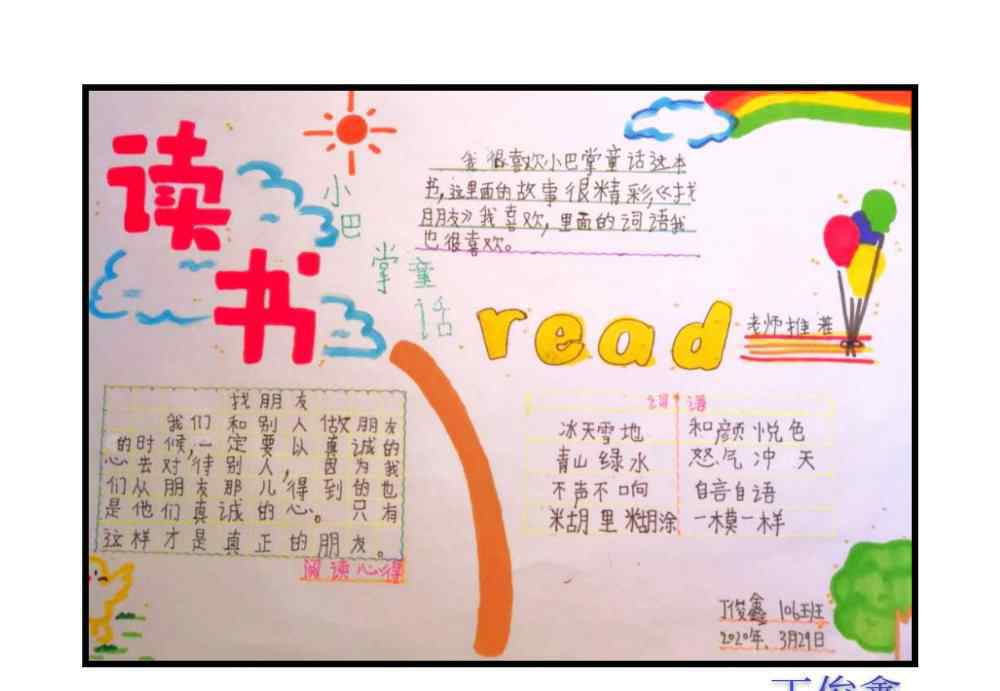 读书
小巴掌童话
我很喜欢小巴掌童话这本
书,这里面的故事很精彩,《找
朋友》我喜欢,里面的词语我
也很喜欢。
read
老师推荐
找朋友
我们和别人做朋友
的时候,一定要以真诚的
心去对待别人,因为我
们从朋友那儿得到的也
是他们真诚的心。只有
这样才是真正的朋友。
阅读心得
词语
冰天雪地 和颜悦色
青山绿水 怒气冲天
不声不响 自言自语
糊里糊涂 一模一样
丁俊鑫 106班
2020年3月29日
丁俊鑫